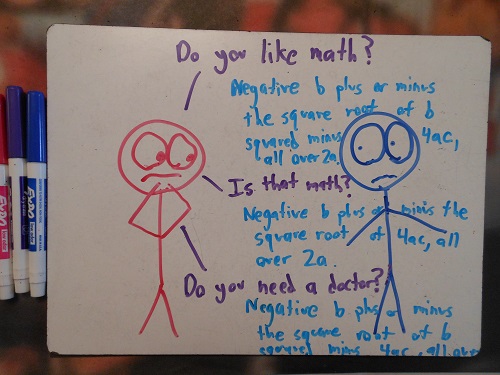 Do you like math?
Negative b plus or minus
the square root of b
squared minus 4ac,
all over 2a.
Is that math?
Negative b plus or minus the
square root of 4ac, all
over 2a.
Do you need a doctor?
Negative b plus or minus
the square root of b
squared minus 4ac, all over
EXPO
EXPO